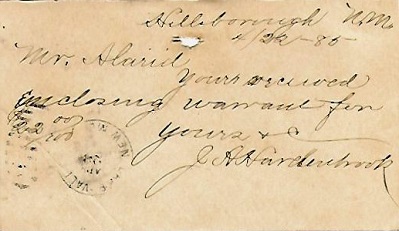 Hillsborough N.M.
4/22-85
Mr. Alarid
Yours received
enclosing warrant for
yours &c
J A Hardenbrook
NEW M